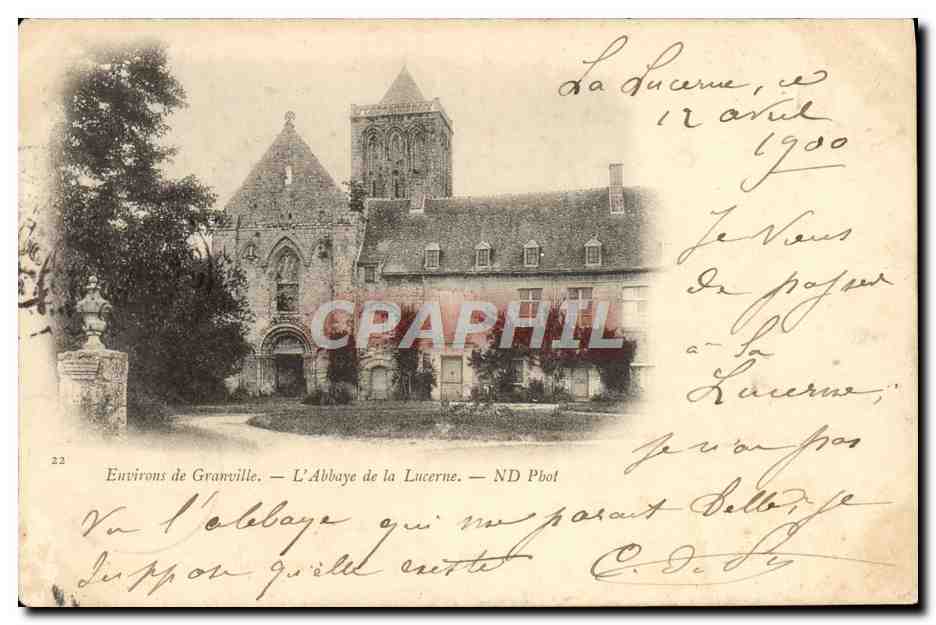 La Lucerne, ce
12 avril
1900
Je viens
de passer
à la
Lucerne,
je n'ai pas
CPAPHIL
22
Environs de Granville. — L'Abbaye de la Lucerne. — ND Phot
vu l'abbaye qui me parait belle, je
suppose qu'elle existe